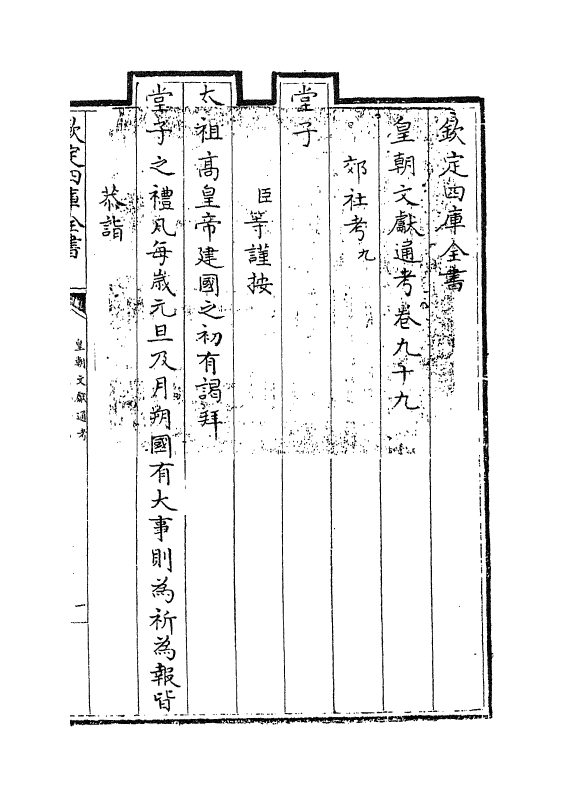 欽定四庫全書
皇朝文獻通考卷九十九
郊社考九
堂子
臣等謹按
太祖高皇帝建國之初有謁拜
堂子之禮凡每歲元旦及月朔國有大事則為祈為報皆
恭詣
欽定四庫全書
皇朝文獻通考
一